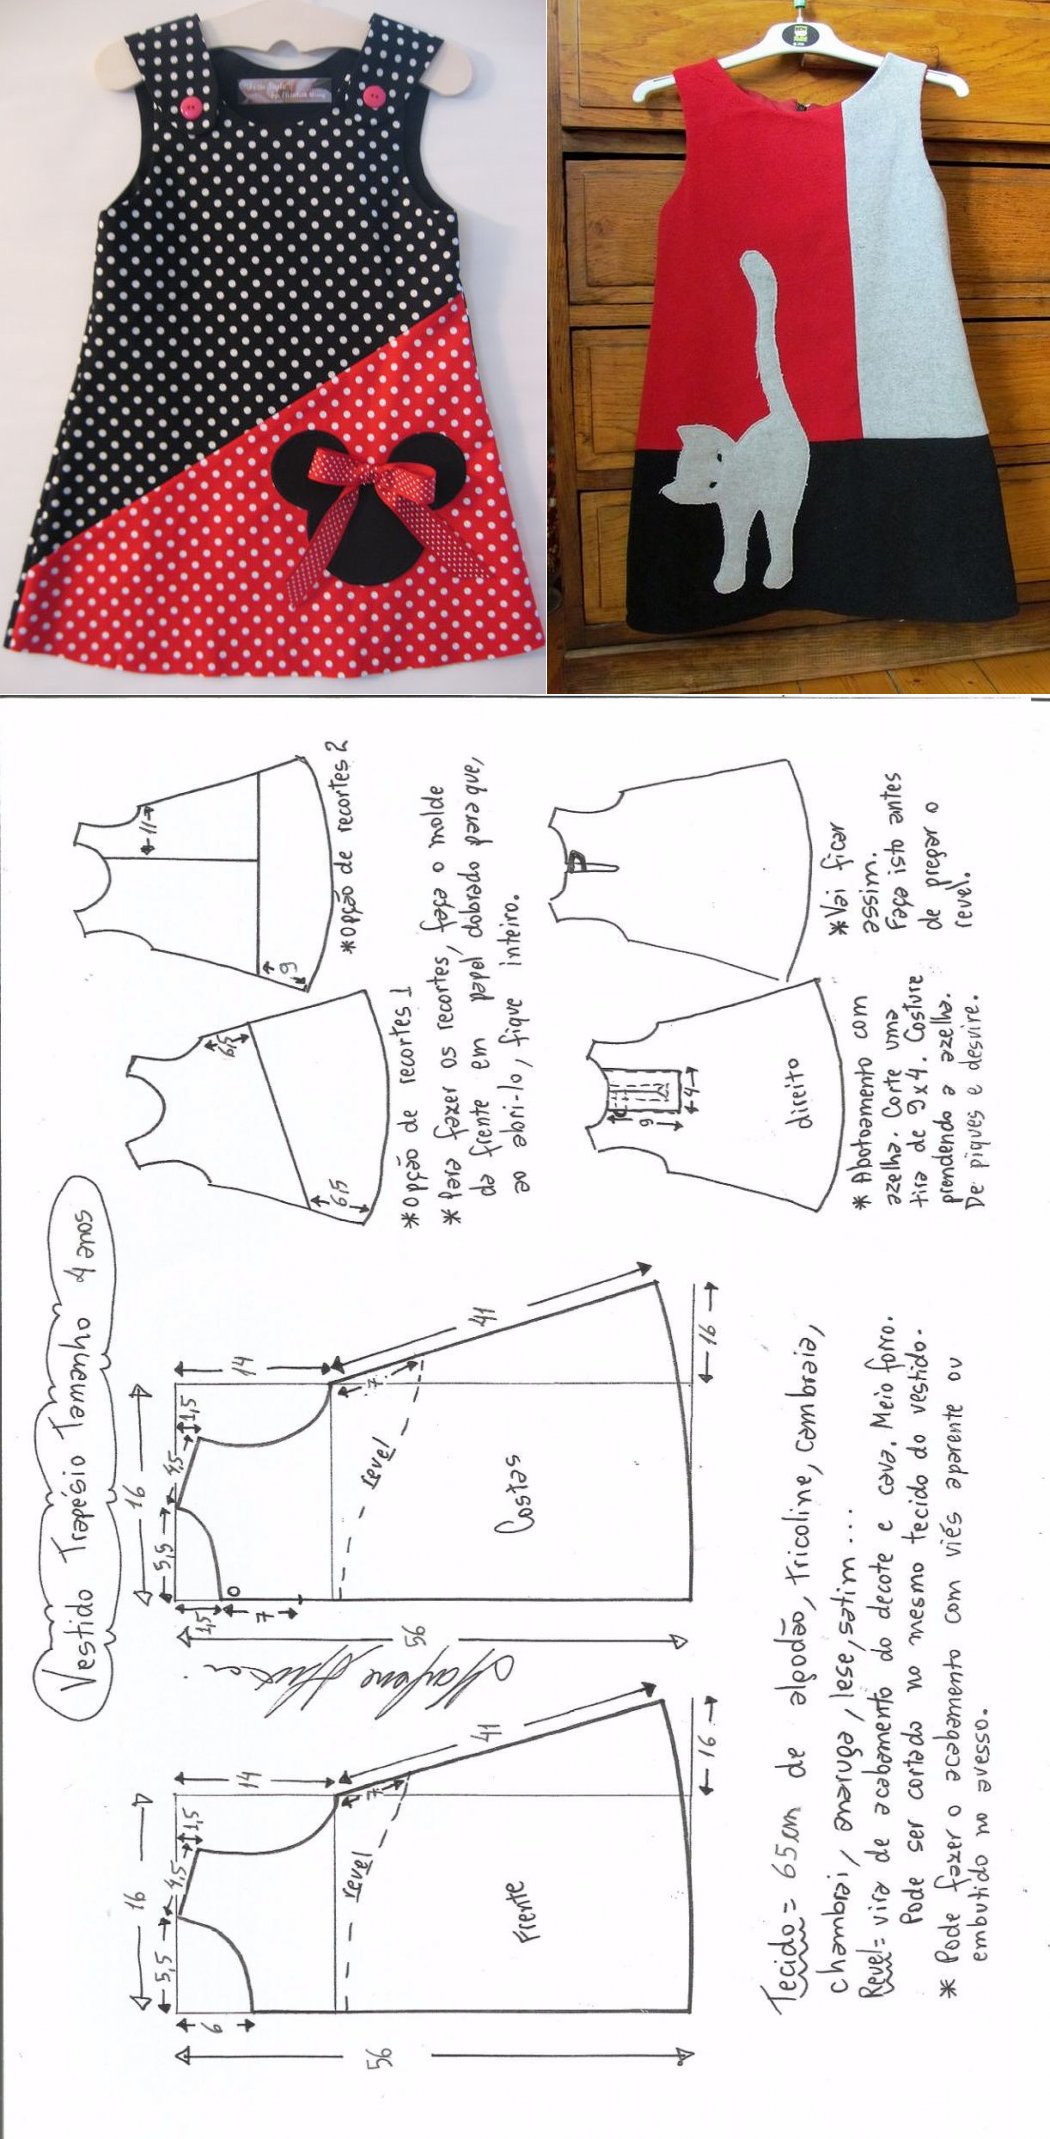 Vestido Trapésio Tamanho 4 anos
56
6
5,5
4,5
1,5
16
14
7
revel
41
16
Frente
56
1,5
7
5,5
4,5
1,5
16
14
7
revel
41
16
Costas
Tecido = 65cm de algodão, tricoline, cambraia,
chambrai, anarruga, lese, setim...
Revel = vira de acabamento do decote e cava. Meio forro.
Pode ser cortado no mesmo tecido do vestido.
* Pode fazer o acabamento com viés aparente ou
embutido no avesso.
6,5
6,5
* Opção de recortes 1
11
9
* Opção de recortes 2
* Para fazer os recortes, faça o molde
da frente em papel dobrado para que,
ao abri-lo, fique inteiro.
9
4
direito
* Abotoamento com
azelha. Corte uma
tira de 9x4. Costure
prendendo a azelha.
De piques e desvire.
* Vai ficar
assim.
Faça isto antes
de pregar o
revel.